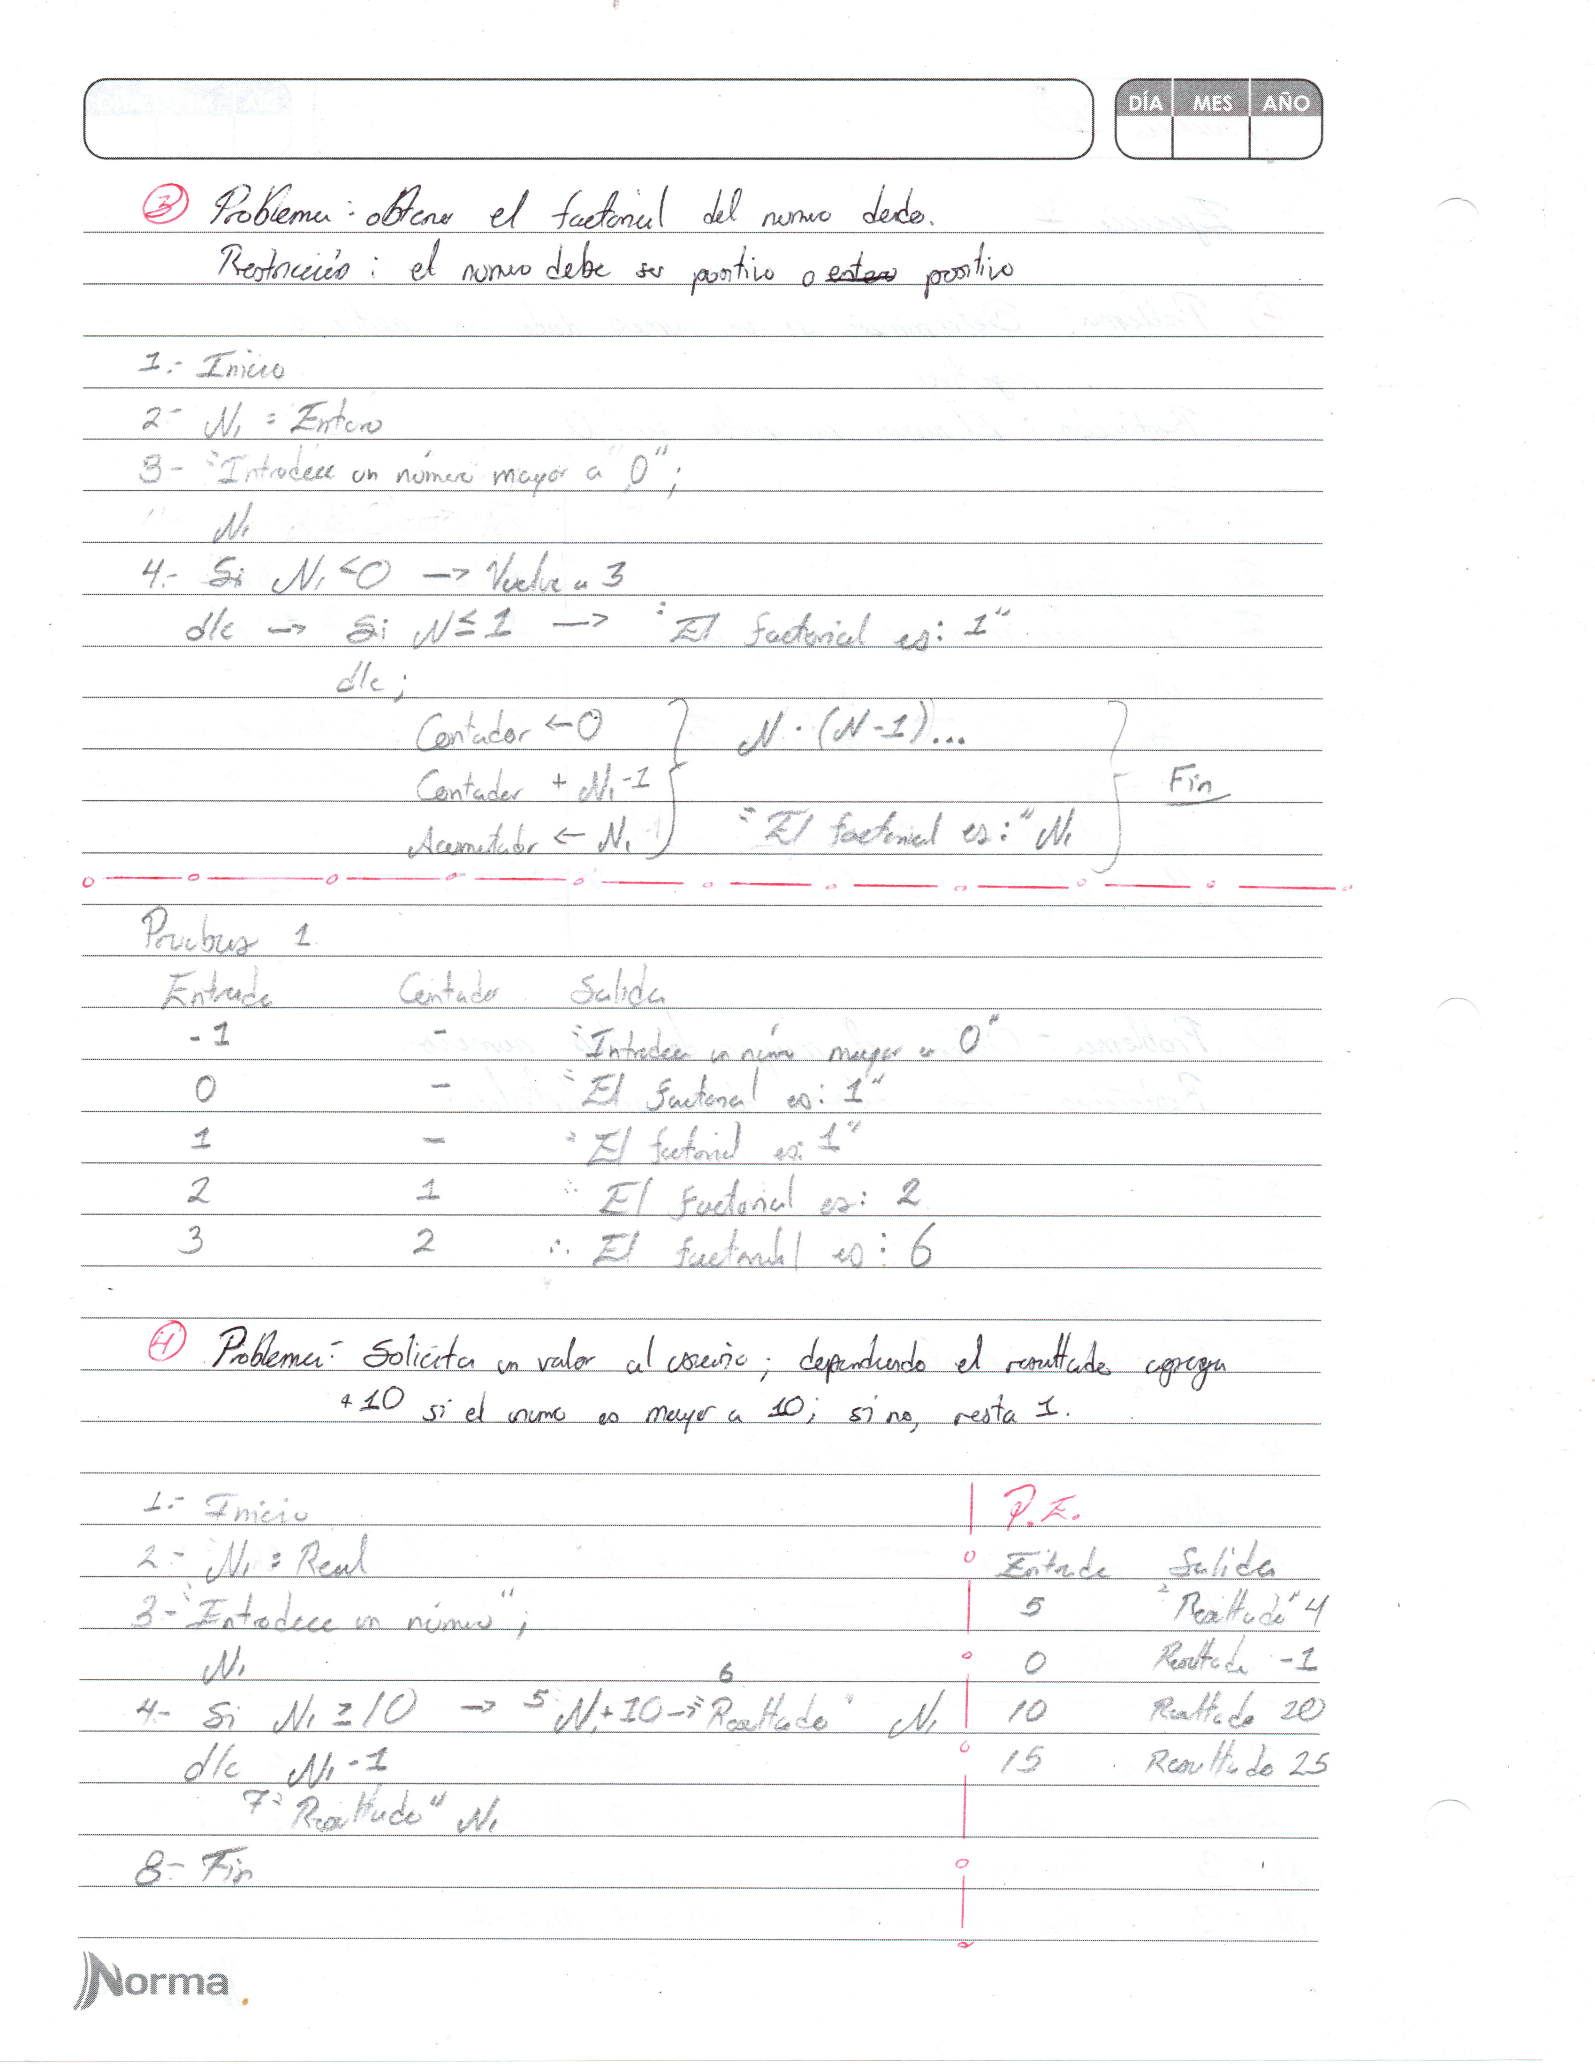 DÍA MES AÑO
③ Problema: obtener el factorial del numero dado.
Restricción: el numero debe ser positivo o entero positivo
1.- Inicio
2- N₁ = Entero
3- "Introduce un número mayor a "0";
N₁
4.- Si N₁ <0 → Vuelve a 3
d/c → Si N ≤ 1 → "El factorial es: 1"
d/c ;
Contador ← 0 N · (N-1)...
Contador + N₁ -1 Fin
Acumulador ← N₁ "El factorial es:" N₁
Pruebas 1
Entrada Contador Salida
-1 - "Introduce un número mayor a 0"
0 - "El factorial es: 1"
1 - "El factorial es: 1"
2 1 El factorial es: 2
3 2 El factorial es: 6
④ Problema: Solicita un valor al usuario; dependiendo el resultado agrega
+10 si el numo es mayor a 10; si no, resta 1.
1.- Inicio P.E.
2- N₁ = Real Entrada Salida
3-"Introduce un número"; 5 "Resultado" 4
N₁ 0 Resultado -1
4- Si N₁ ≥10 → 5 N₁+10 → 6 "Resultado" N₁ 10 Resultado 20
d/c N₁ -1 15 Resultado 25
7 "Resultado" N₁
8- Fin
Norma